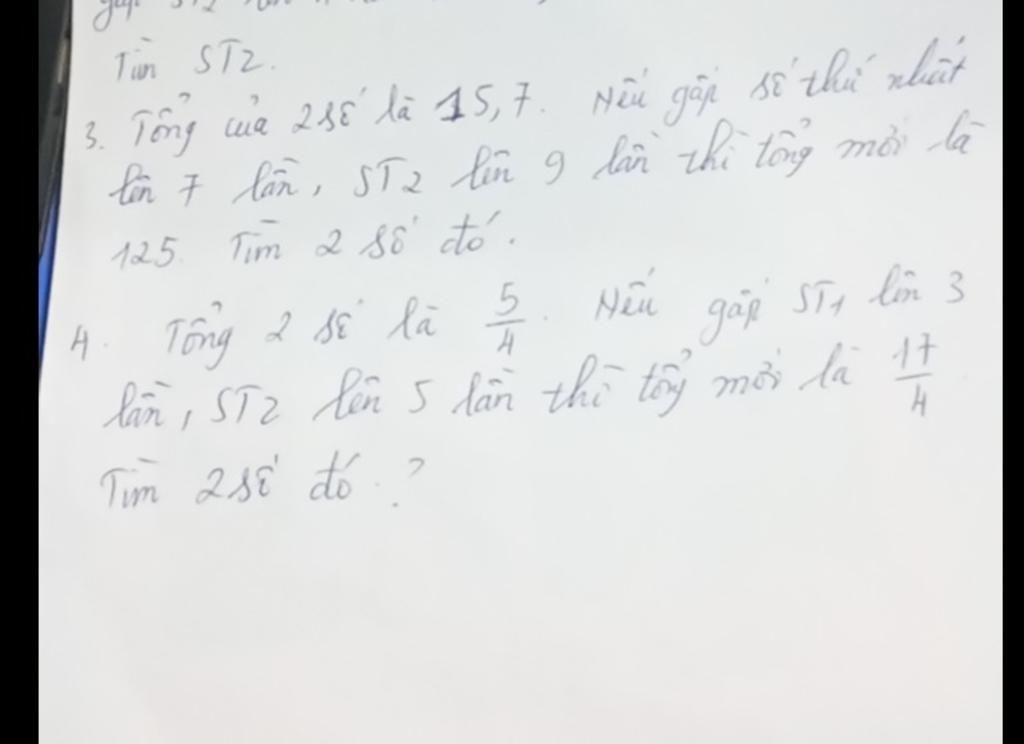 gấp ST2 lên
Tìm ST2.
3. Tổng của 2 số là 15,7. Nếu gấp số thứ nhất
lên 7 lần, ST2 lên 9 lần thì tổng mới là
125. Tìm 2 số đó.
4. Tổng 2 số là 5/4. Nếu gấp ST1 lên 3
lần, ST2 lên 5 lần thì tổng mới là 17/4
Tìm 2 số đó.?